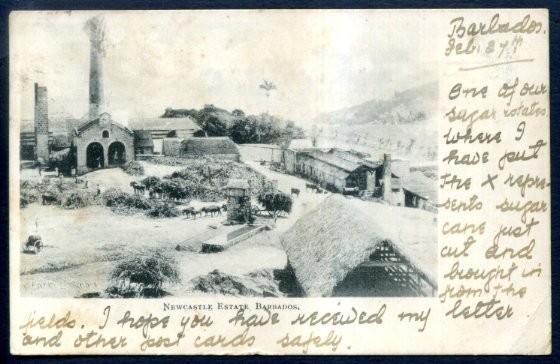 Barbados.
Feb. 27th
One of our
sugar
where I
have put
the X repre-
sents sugar
cane just
cut and
brought in
from the
NEWCASTLE ESTATE, BARBADOS,
fields. I hope you have received my letter
and other post cards safely.